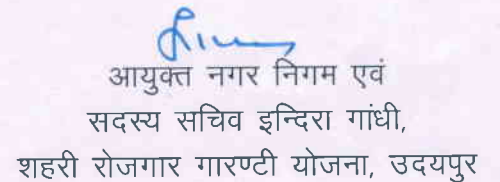 आयुक्त नगर निगम एवं
सदस्य सचिव इन्दिरा गांधी,
शहरी रोजगार गारण्टी योजना, उदयपुर